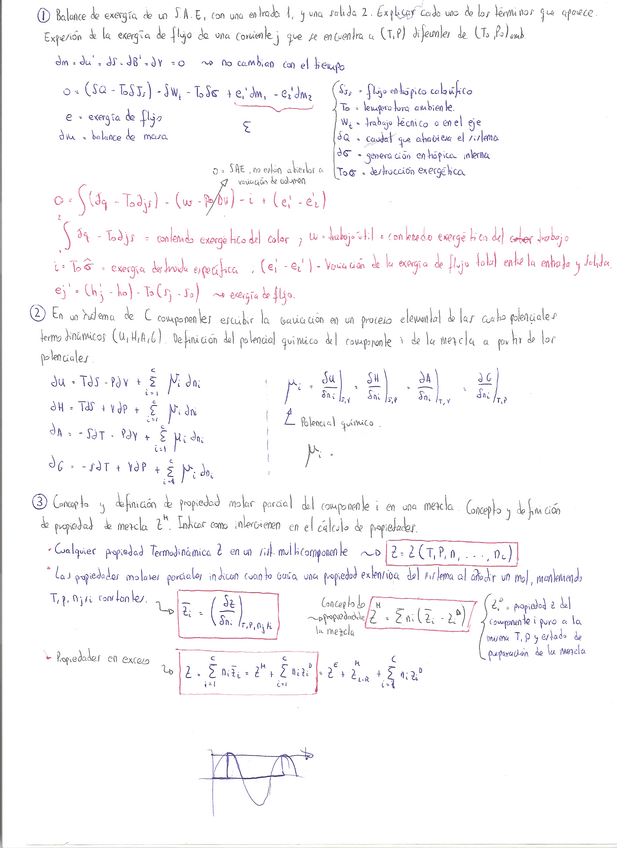 ① Balance de exergía de un S.A.E, con una entrada 1, y una salida 2. Explicar cada uno de los términos que aparece.
Expresión de la exergía de flujo de una corriente j que se encuentra a (T,P) diferentes de (To,Po)amb
dm = du' = dS = dB' = dV = 0 ⇝ no cambian con el tiempo
0 = (δQ - ToδJs) - δWt - Toδσ + e1'dm1 - e2'dm2
e = exergía de flujo
dm = balance de masa
Σ
δJs = flujo entrópico calorífico
To = temperatura ambiente.
Wt = trabajo técnico o en el eje
dQ = caudal que atraviesa el sistema
dσ = generación entrópica interna
Toσ = destrucción exergética
0 = SAE, no están abiertos a
variación de volumen
0 = ∫(dq - Todjs) - (w - PoΔv) - i + (e1' - e2')
∫ dq - Todjs = contenido exergético del calor ; w = trabajo útil = contenido exergético del trabajo
i = Toσ̂ = exergía destruida específica , (e1' - e2') - Variación de la exergía de flujo total entre la entrada y salida.
ej' = (hj' - ho) - To(sj - so) ⇝ exergía de flujo.
② En un sistema de C componentes escribir la variación en un proceso elemental de las cuatro potenciales
termodinámicos (U,H,A,G). Definición del potencial químico del componente i de la mezcla a partir de los
potenciales.
dU = TdS - PdV + Σ i=1 c μi dni
dH = TdS + VdP + Σ i=1 c μi dni
dA = - SdT - PdV + Σ i=1 c μi dni
dG = - SdT + VdP + Σ i=1 c μi dni
μi = δU/δni|S,V = δH/δni|S,P = δA/δni|T,V = δG/δni|T,P
Potencial químico.
μi =
③ Concepto y definición de propiedad molar parcial del componente i en una mezcla. Concepto y definición
de propiedad de mezcla Z^M. Indicar como intervienen en el cálculo de propiedades.
- Cualquier propiedad Termodinámica Z en un sist. multicomponente ⇝ Z = Z(T, P, n1 . . . , nc)
• Las propiedades molares parciales indican cuanto varía una propiedad extensiva del sistema al añadir un mol, manteniendo
T, P, nj≠i constantes. ⇝ z̄i = (δZ/δni)T,P,nj≠i
Concepto de
propiedad de
la mezcla
Z^M = Σ ni (z̄i - zi^0)
zi^0 = propiedad Z del
componente i puro a la
misma T, P y estado de
preparación de la mezcla
- Propiedades en exceso ⇝ Z = Σ i=1 c ni z̄i = Z^M + Σ i=1 c ni zi^0 = Z^E + Z^M I-R + Σ i=1 c ni zi^0